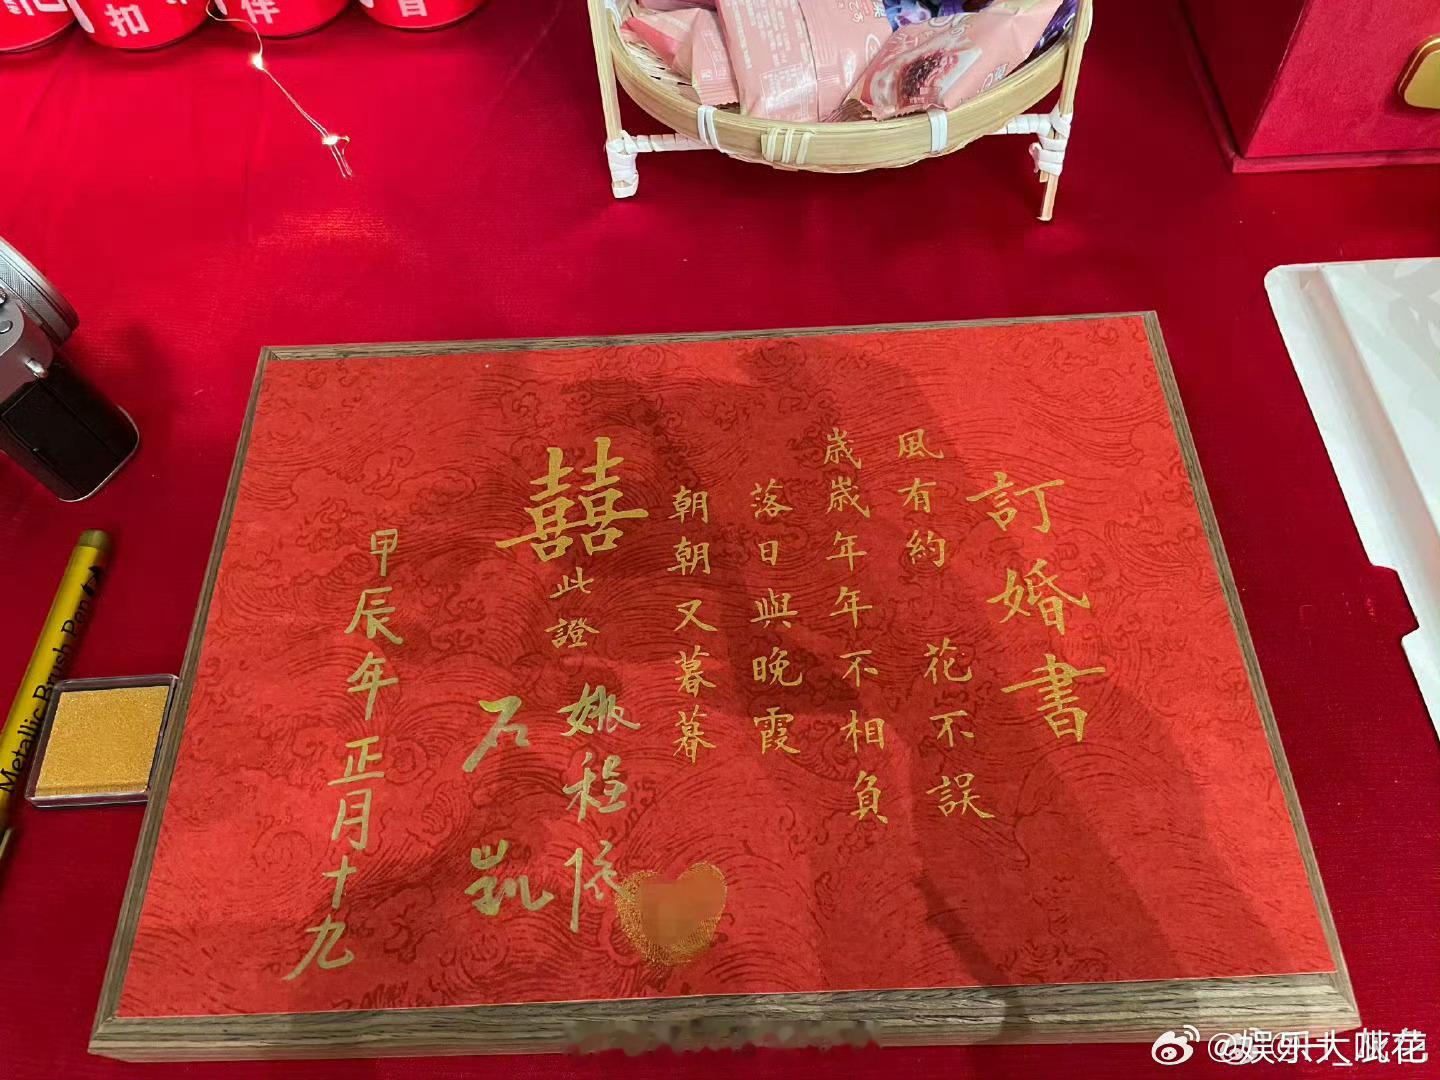 扣
伴
訂婚書
風有約 花不誤
歲歲年年不相負
落日與晚霞
朝朝又暮暮
囍
此證
程
石凯
甲辰年正月十九
Metallic Brush Pen
@娱乐大呲花